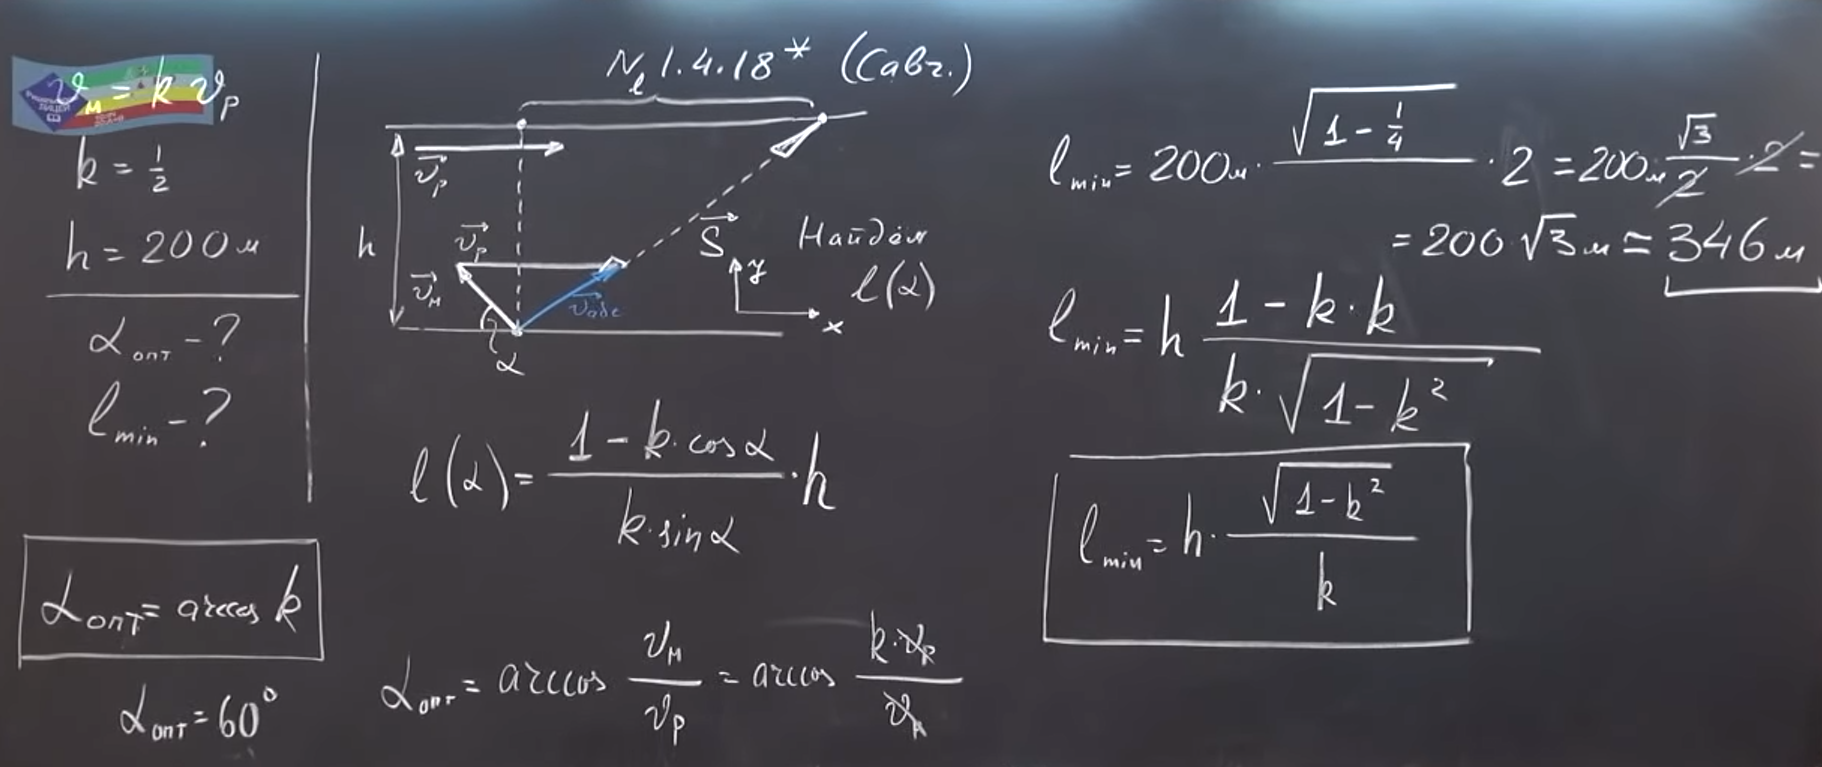 № 1.4.18* (Савч.)
v_м = k v_р
k = 1/2
h = 200 м
α_опт - ?
l_min - ?
α_опт = arccos k
α_опт = 60°
l
v⃗_р
h
v⃗_р
v⃗_м
v⃗_абс
α
S⃗
y
x
Найдём
l(α)
l(α) = (1 - k·cos α)/(k·sin α) · h
α_опт = arccos v_м/v_р = arccos (k·v_р)/v_р
l_min = 200м · √(1 - 1/4) · 2 = 200м · √3/2 · 2 =
= 200 · √3 м ≃ 346 м
l_min = h (1 - k·k)/(k·√(1 - k²))
l_min = h · √(1 - k²)/k